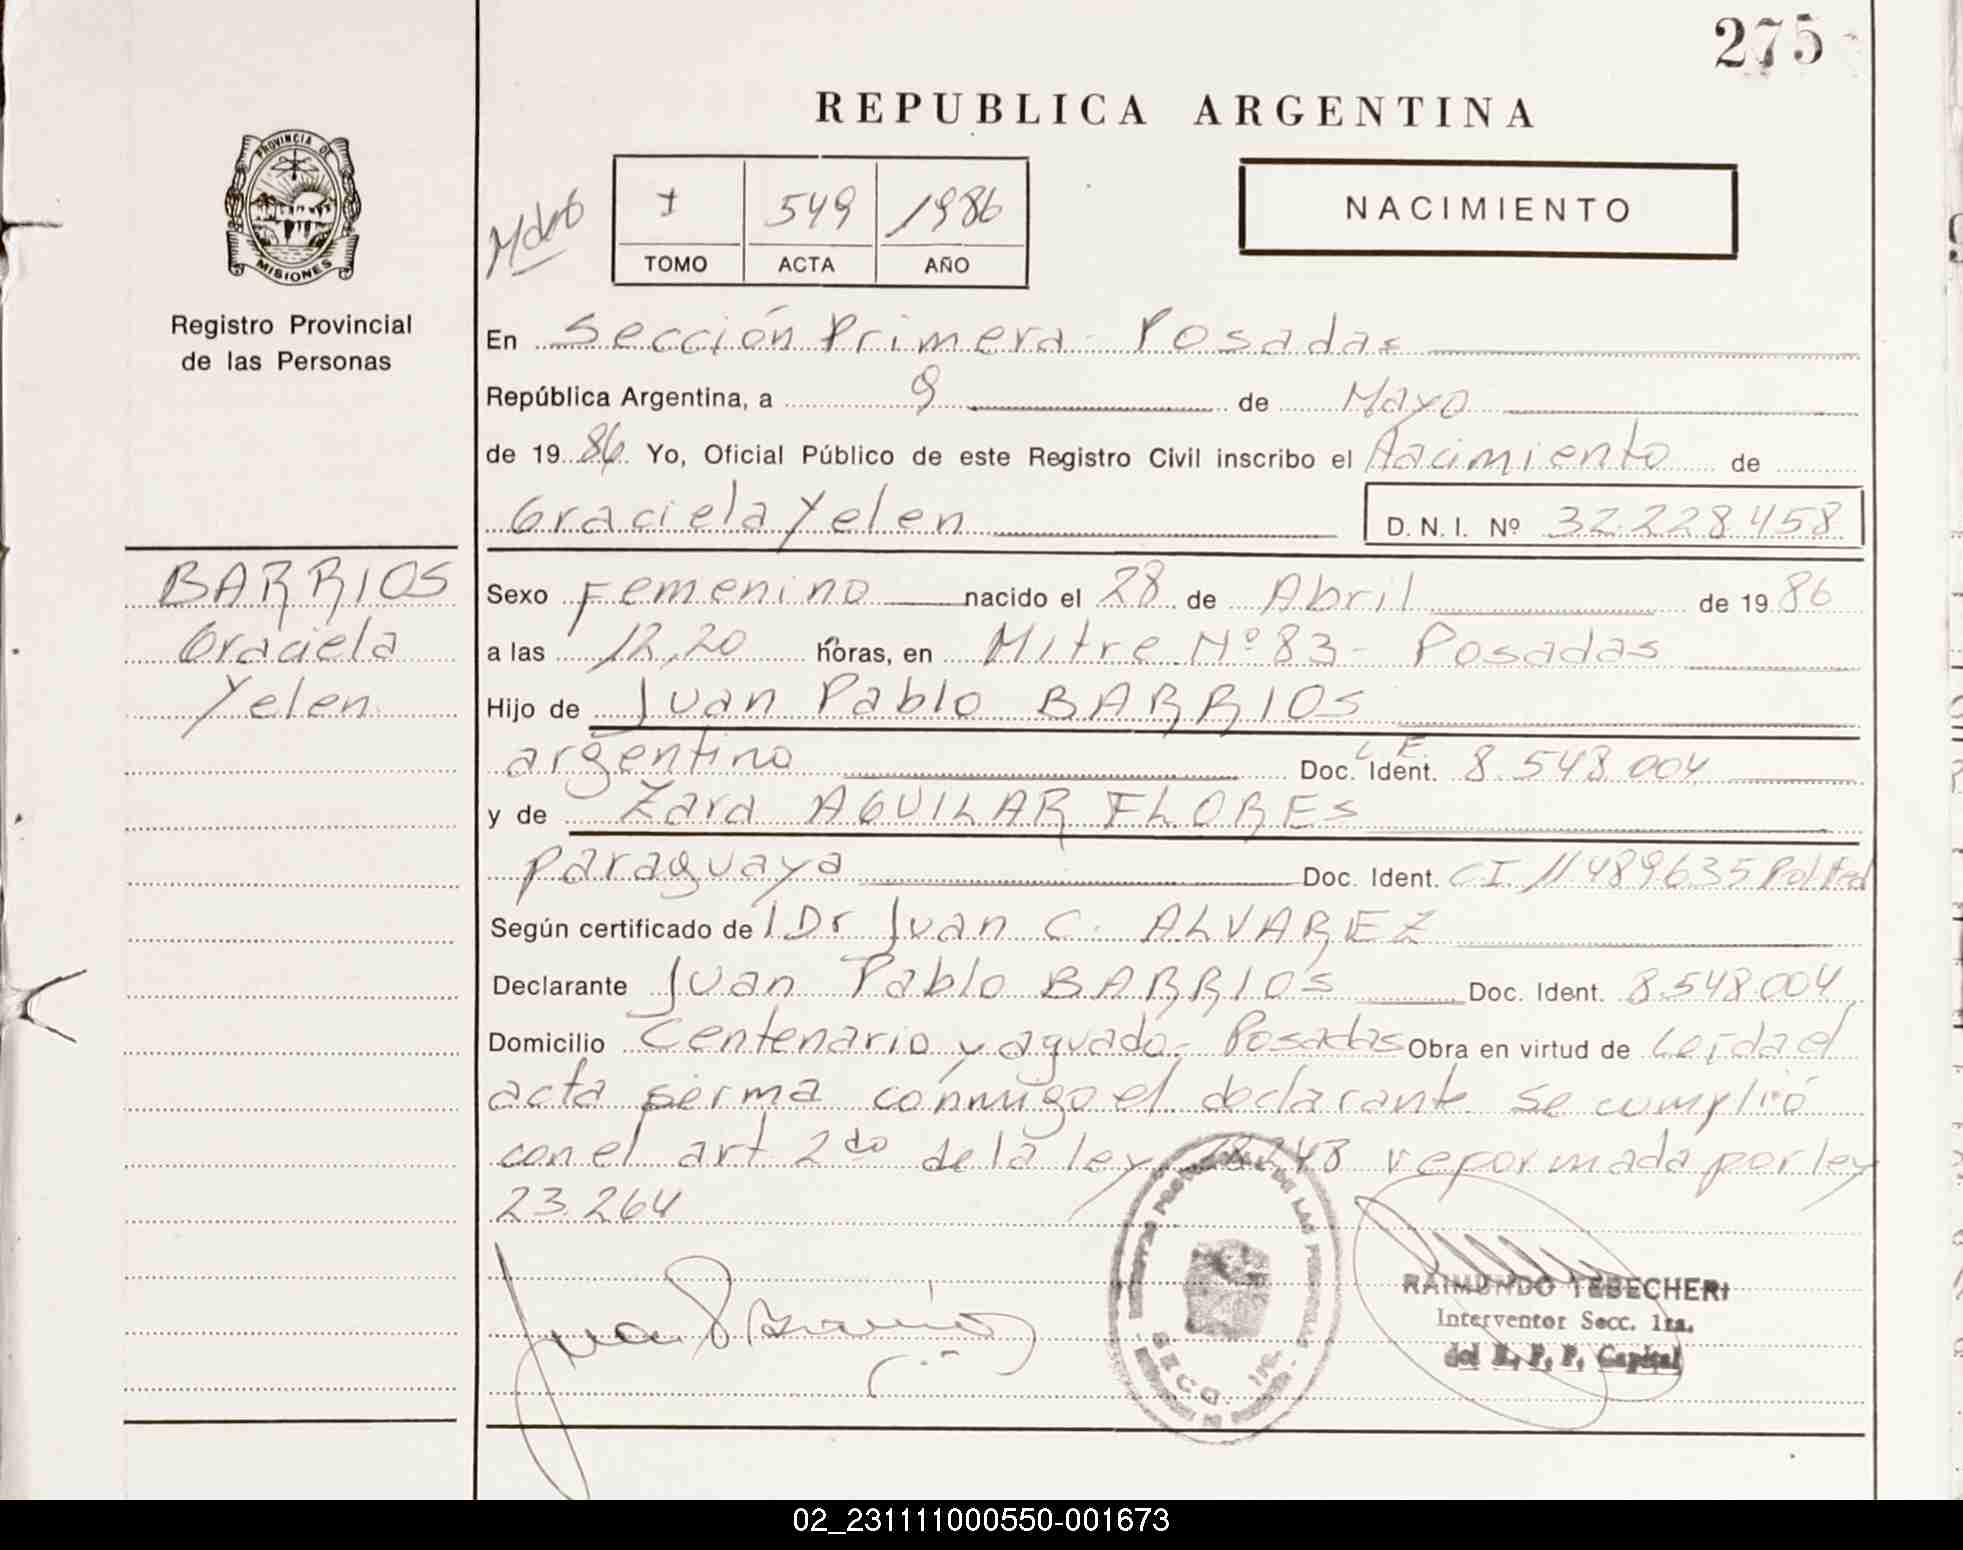 275
REPUBLICA ARGENTINA
PROVINCIA DE
MISIONES
Registro Provincial
de las Personas
I 549 1986
TOMO ACTA AÑO
NACIMIENTO
En Sección Primera - Posadas
República Argentina, a 9 de Mayo
de 1986 Yo, Oficial Público de este Registro Civil inscribo el Nacimiento de
Graciela Yelen D. N. I. Nº 32.228.458
BARRIOS
Graciela
Yelen
Sexo Femenino nacido el 28 de Abril de 1986
a las 12,20 horas, en Mitre Nº 83 - Posadas
Hijo de Juan Pablo BARRIOS
argentino Doc. Ident. L.E. 8.548.004
y de Zara AGUILAR FLORES
paraguaya Doc. Ident. CI 11489635 Pol Fed
Según certificado del Dr Juan C. ALVAREZ
Declarante Juan Pablo BARRIOS Doc. Ident. 8.548.004
Domicilio Centenario y aguado - Posadas Obra en virtud de Leida el
acta firma conmigo el declarante se cumplió
con el art 2do de la ley 18.248 reformada por ley
23.264
DE LAS PERSONAS
SECC. 1RA.
RAIMUNDO TEBECHERI
Interventor Secc. 1ra.
del R. P. P. Capital
02_231111000550-001673